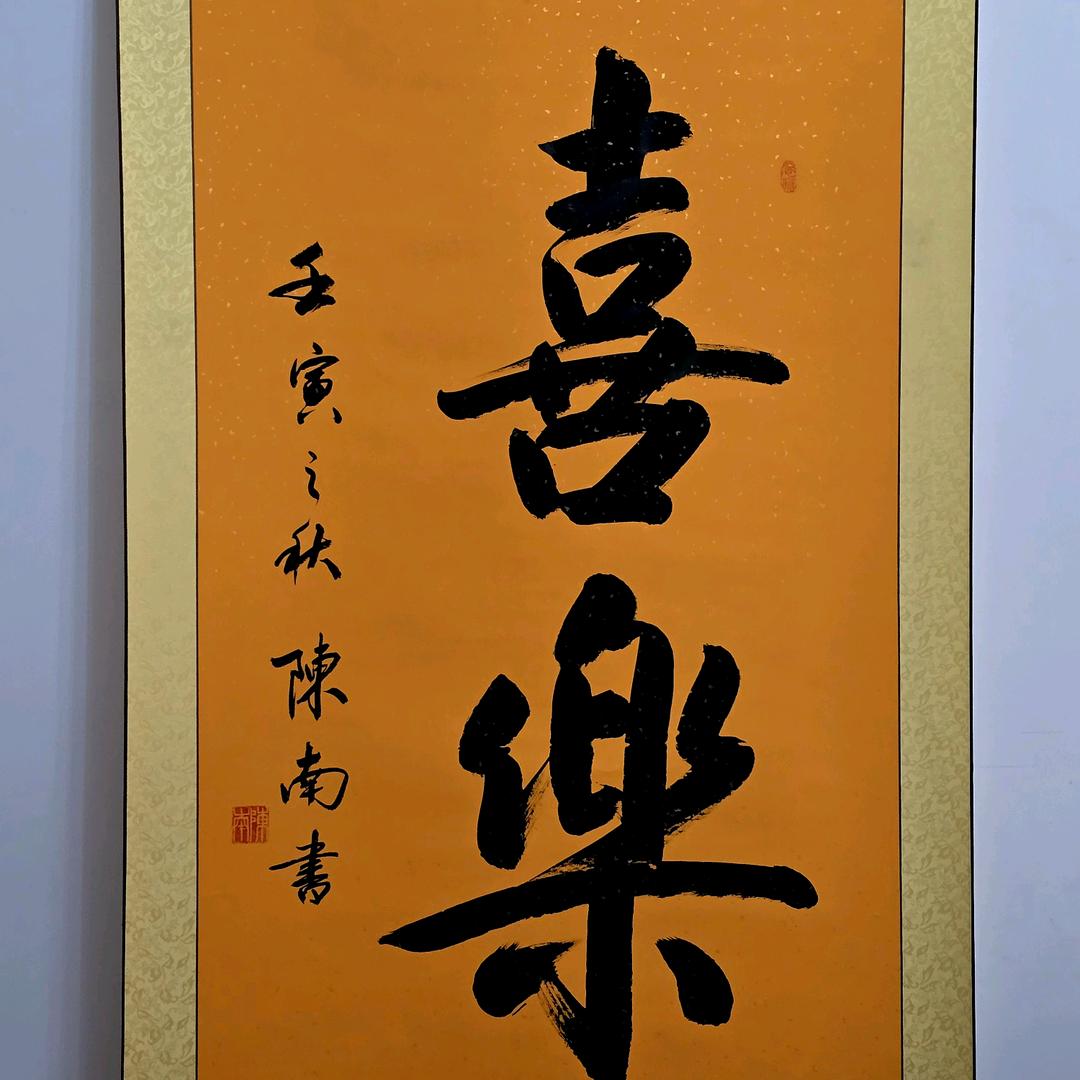 喜樂
壬寅之秋 陳南書
陳南